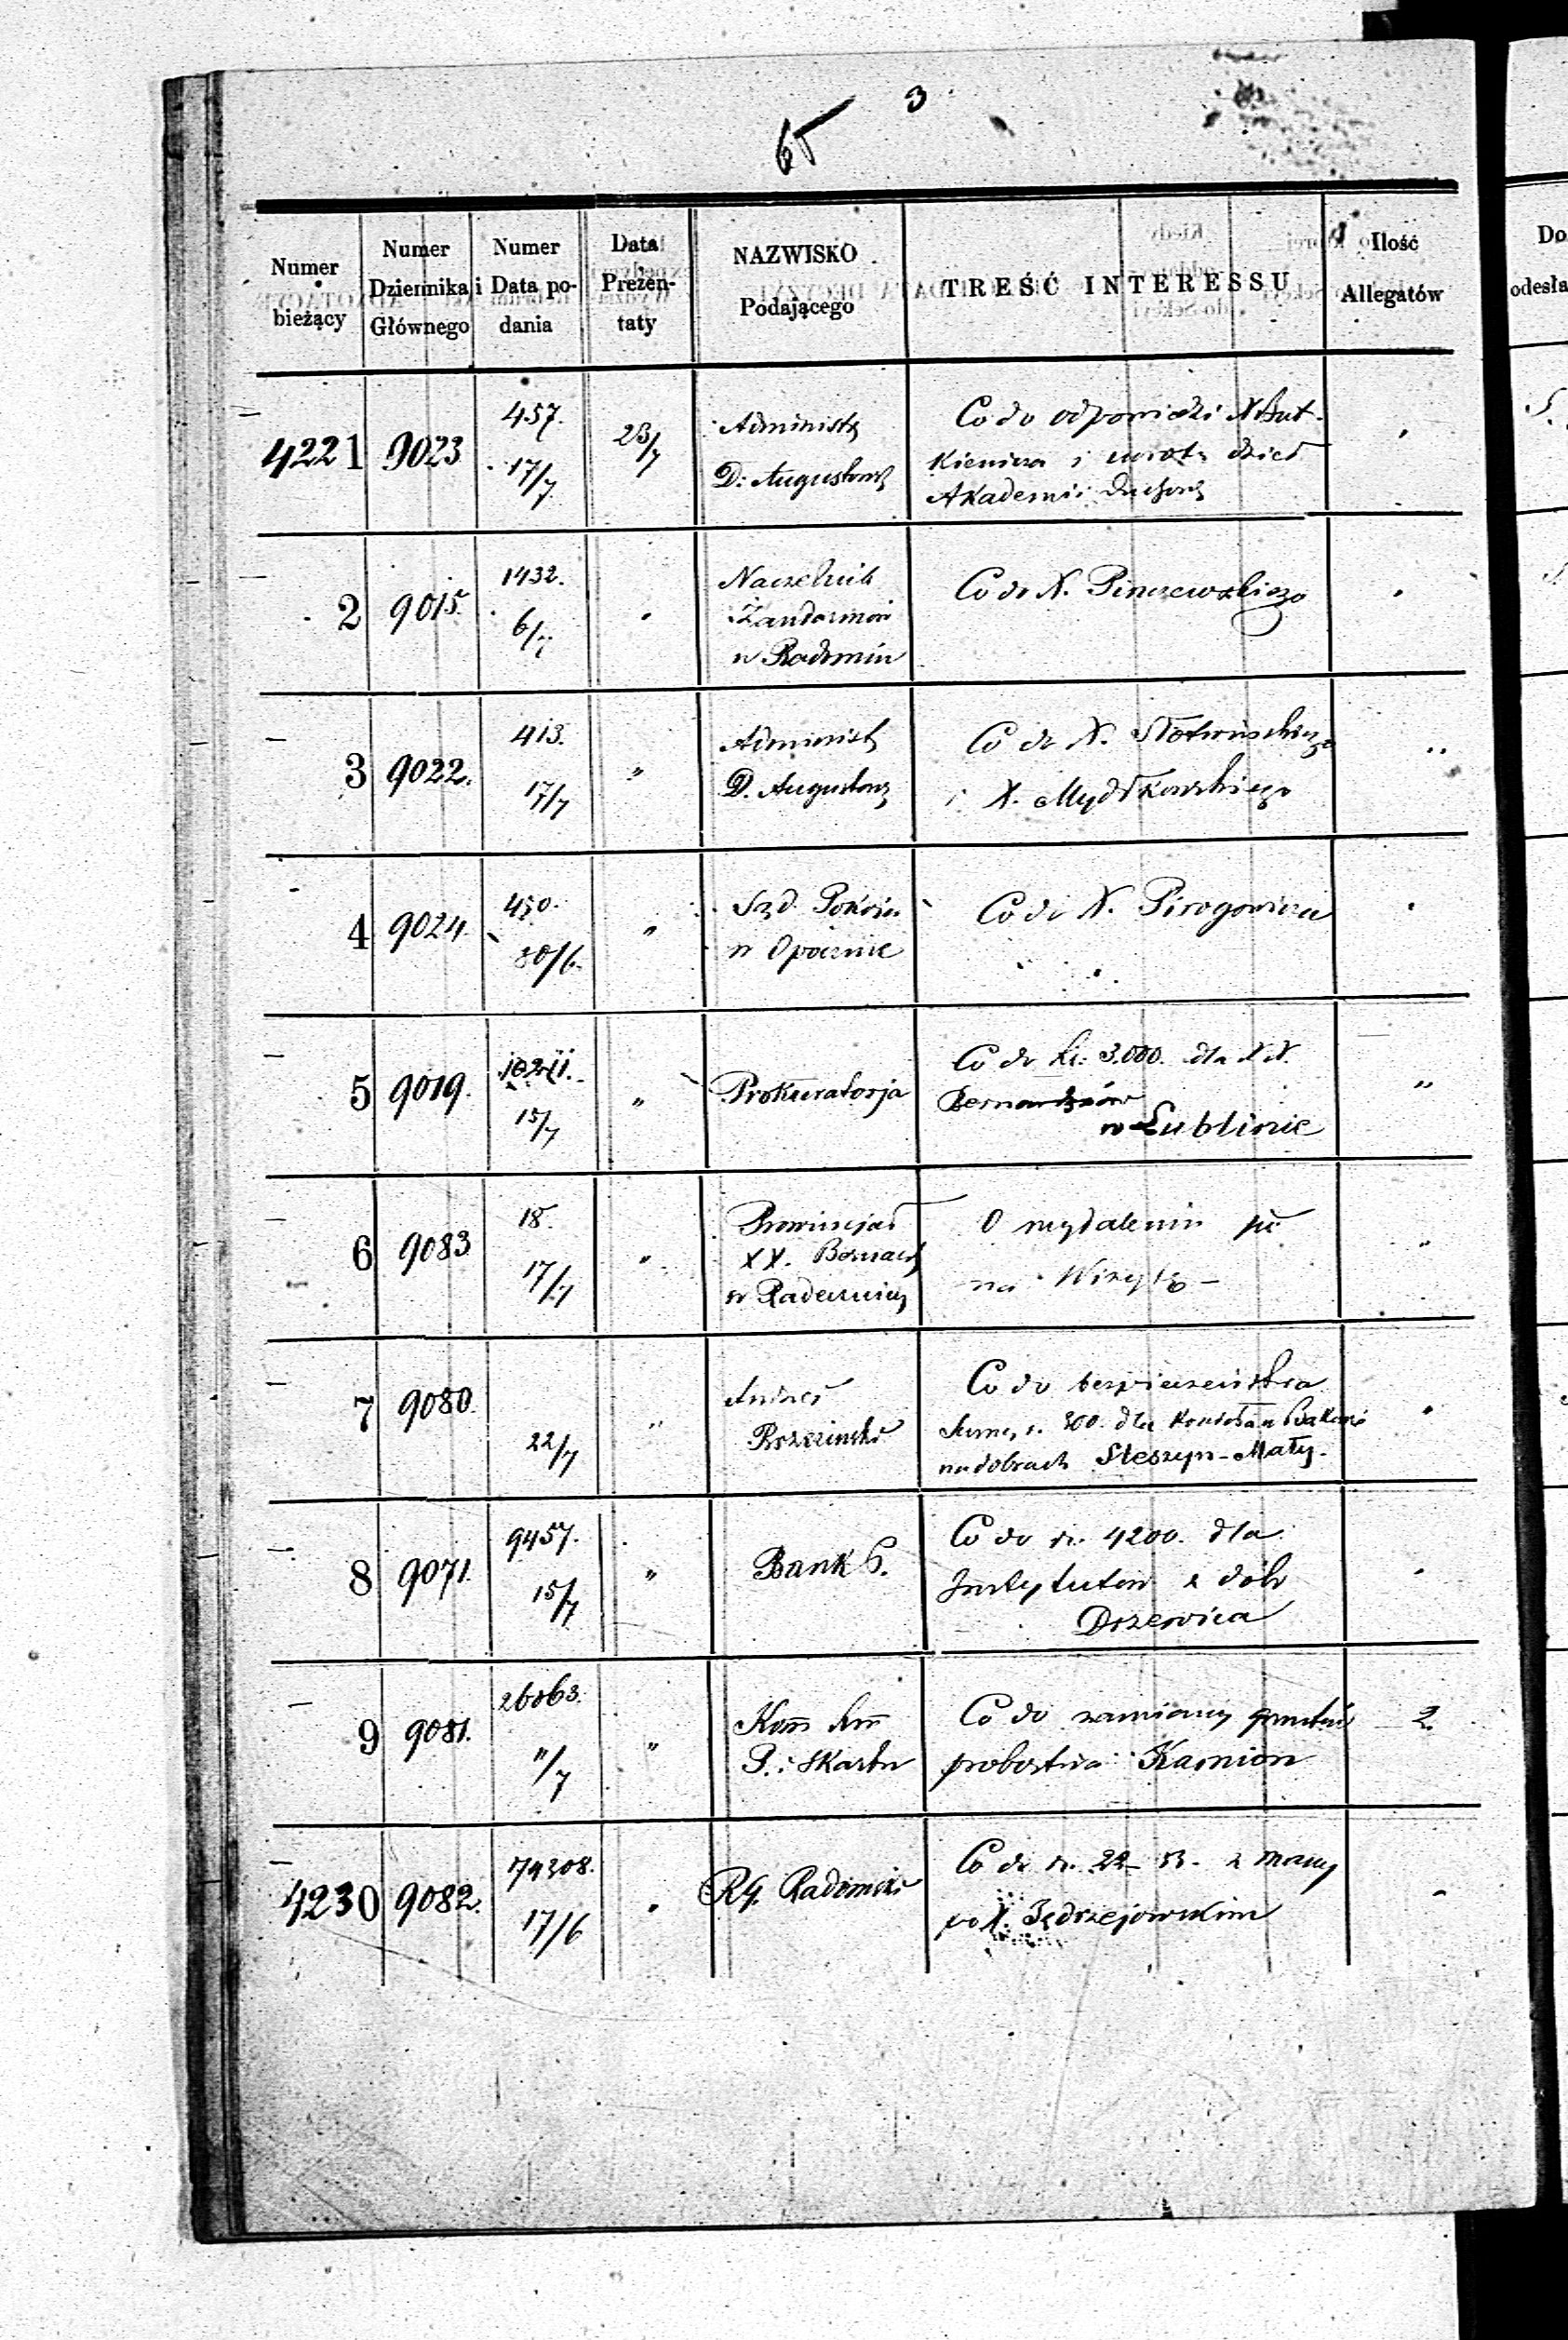 3
65
Numer bieżący
Numer Dziennika Głównego
Numer i Data podania
Data Prezentaty
NAZWISKO Podającego
TREŚĆ INTERESSU
Ilość Allegatów
Do
odesła
4221 9023 457. 17/7 23/7
Administ
D: Augustows
Co do odpowiedzi X But-
kiewicza i dzieł
Akademii Duchow
2 9015. 1432. 6/7
Naczelnik
Żandarmów
w Radomiu
Co do X. Pinczewskiego
3 9022. 413. 17/7 "
Administ
D. Augustow
Co do X. Słotwińskiego
i X. Mydłkowskiego
4 9024. 450. 30/6. "
Sąd Pokoju
w Opocznie
Co do X. Pirogowicza
5 9019. 15/7 "
Prokuratorja
Co do 3.000. dla XX.
Bernardynów
w Lublinie
"
6 9083 18. 17/7 "
Prowincjał
XX. Bernard
w Radecznicy
O wydalenie się
na Wizytę -
"
7 9080. 22/7 "
Andrzej
Brzeziński
Co do bezpieczeństwa
Summy r. 300. dla Kościoła
na dobrach Sleszyn-Mały.
8 9071. 9457. 15/7 "
Bank P.
Co do rs. 4200. dla
Instytutów z dóbr
Drzewica
9 9081. 26063. 11/7 "
Kom Rzn
P. i Skarbu
Co do zamiany gruntów
probostwa Kamion
2.
4230 9082. 74308. 17/6
RG. Radomski
Co do rs. 22 - 53. z massy
po X. Jędrzejowskim